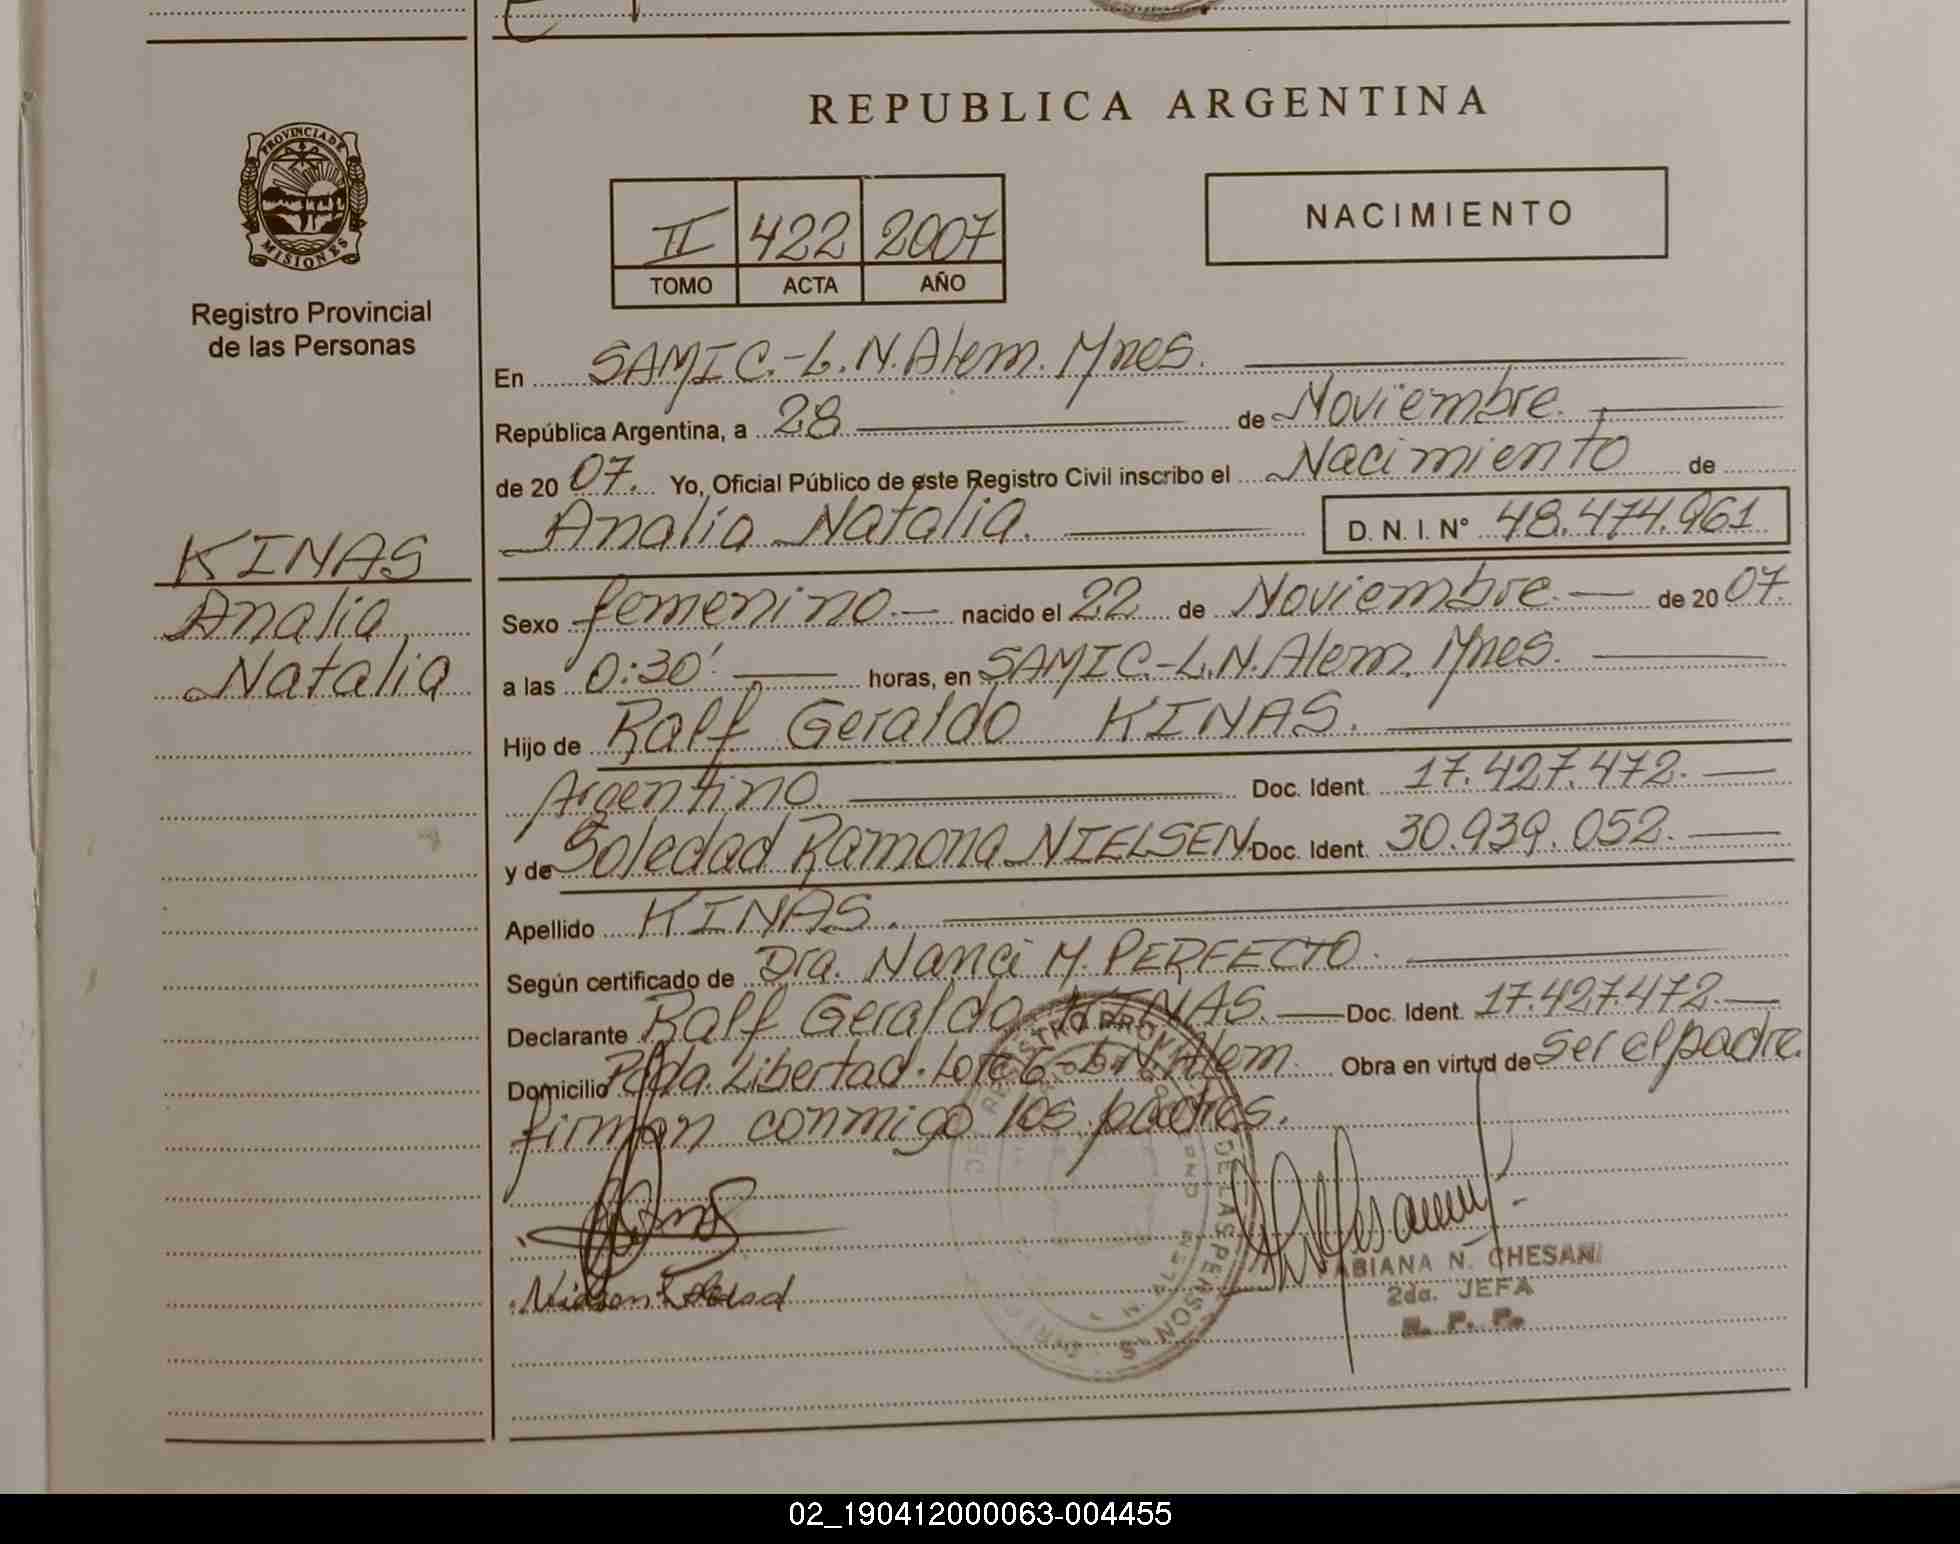 REPUBLICA ARGENTINA
PROVINCIA DE
MISIONES
Registro Provincial
de las Personas
II 422 2007
TOMO ACTA AÑO
NACIMIENTO
En SAMIC.-L.N.Alem. Mnes.
República Argentina, a 28 de Noviembre.
de 20 07. Yo, Oficial Público de este Registro Civil inscribo el Nacimiento de
Analia Natalia. D. N. I. Nº 48.474.961
KINAS
Analia
Natalia
Sexo femenino.— nacido el 22 de Noviembre.— de 20 07.
a las 0:30' horas, en SAMIC.-L.N.Alem. Mnes.
Hijo de Ralf Geraldo KINAS.
Argentino. Doc. Ident. 17.427.472.
y de Soledad Ramona NIELSEN. Doc. Ident. 30.939.052.
Apellido KINAS.
Según certificado de Dra. Nanci M. PERFECTO.
Declarante Ralf Geraldo KINAS. Doc. Ident. 17.427.472.
Domicilio Pda. Libertad. Lote 6-L.N.Alem. Obra en virtud de Ser el padre.
firman conmigo los padres.
FABIANA N. CHESANI
2da. JEFA
R. P. P.
02_190412000063-004455